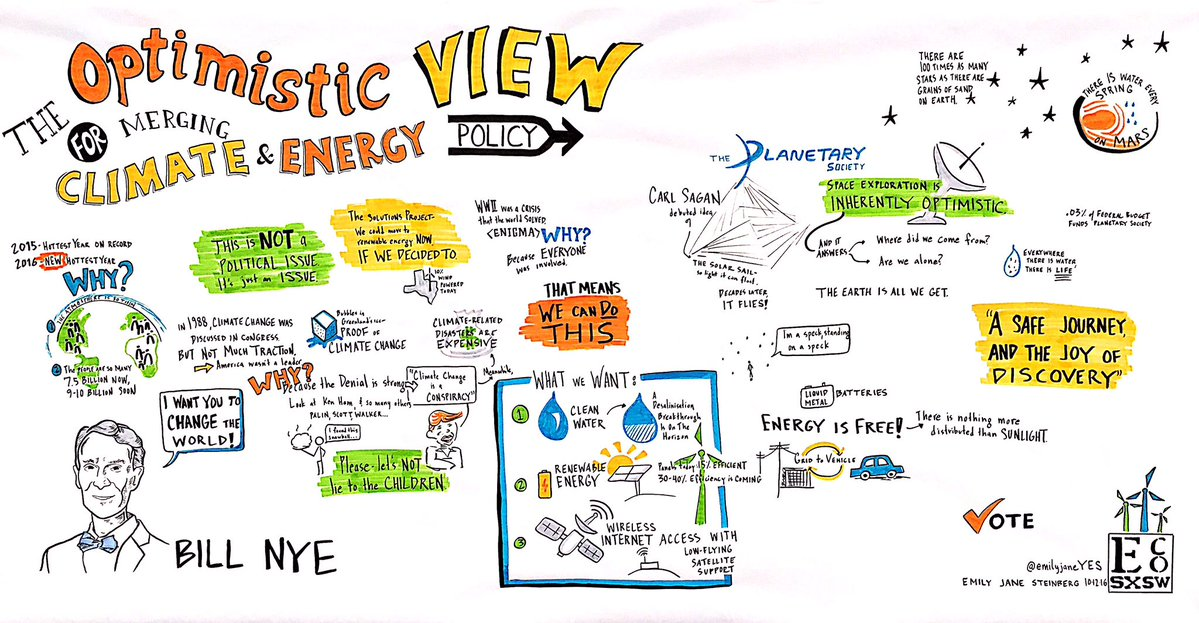 THE Optimistic VIEW
FOR MERGING
CLIMATE & ENERGY
POLICY
2015-HOTTEST YEAR ON RECORD
2016-NEW HOTTEST YEAR
WHY?
1 THE ATMOSPHERE IS SO THIN
2 THE PEOPLE ARE SO MANY
7.5 BILLION NOW,
9-10 BILLION SOON
I WANT YOU TO
CHANGE THE
WORLD!
BILL NYE
THIS IS NOT a
POLITICAL ISSUE
It's just an ISSUE.
IN 1988, CLIMATE CHANGE WAS
DISCUSSED IN CONGRESS
BUT NOT MUCH TRACTION,
America wasn't a leader
WHY?
Because the Denial is strong
Look at Ken Ham, & so many others
PALIN, SCOTT WALKER...
I found this
snowball...
"Climate Change
is a
CONSPIRACY"
Please-let's NOT
lie to the CHILDREN.
The Solutions Project-
We could move to
renewable energy NOW
IF WE DECIDED TO.
10%
WIND
POWERED
TODAY
Bubbles in
Greenland's ice-
PROOF OF
CLIMATE CHANGE
CLIMATE-RELATED
DISASTERS ARE
EXPENSIVE
Meanwhile,
WWII WAS A CRISIS
that the world SOLVED.
<ENIGMA>
WHY?
Because EVERYONE
was involved.
THAT MEANS
WE CAN DO
THIS
WHAT WE WANT:
1 CLEAN
WATER
A
Desalinisation
Breakthrough
Is On The
Horizon
2 RENEWABLE
ENERGY
Panels today 15% EFFICIENT
30-40% Efficiency is COMING
3 WIRELESS
INTERNET ACCESS WITH
LOW-FLYING
SATELLITE
SUPPORT
THE PLANETARY
SOCIETY
CARL SAGAN
debuted idea of
THE SOLAR SAIL-
so light it can float.
DECADES LATER
IT FLIES!
SPACE EXPLORATION IS
INHERENTLY OPTIMISTIC.
AND IT
ANSWERS
Where did we come from?
Are we alone?
THE EARTH IS ALL WE GET.
I'm a speck, standing
on a speck
LIQUID
METAL
BATTERIES
ENERGY IS FREE!
There is nothing more
distributed than SUNLIGHT.
GRID to VEHICLE
THERE ARE
100 TIMES AS MANY
STARS AS THERE ARE
GRAINS OF SAND
ON EARTH.
THERE IS WATER EVERY
SPRING
ON MARS
.03% of FEDERAL BUDGET
FUNDS PLANETARY SOCIETY
EVERYWHERE
THERE IS WATER
THERE IS LIFE
"A SAFE JOURNEY,
AND THE JOY OF
DISCOVERY"
VOTE
@emilyjaneYES
EMILY JANE STEINBERG 101216
ECO
SXSW